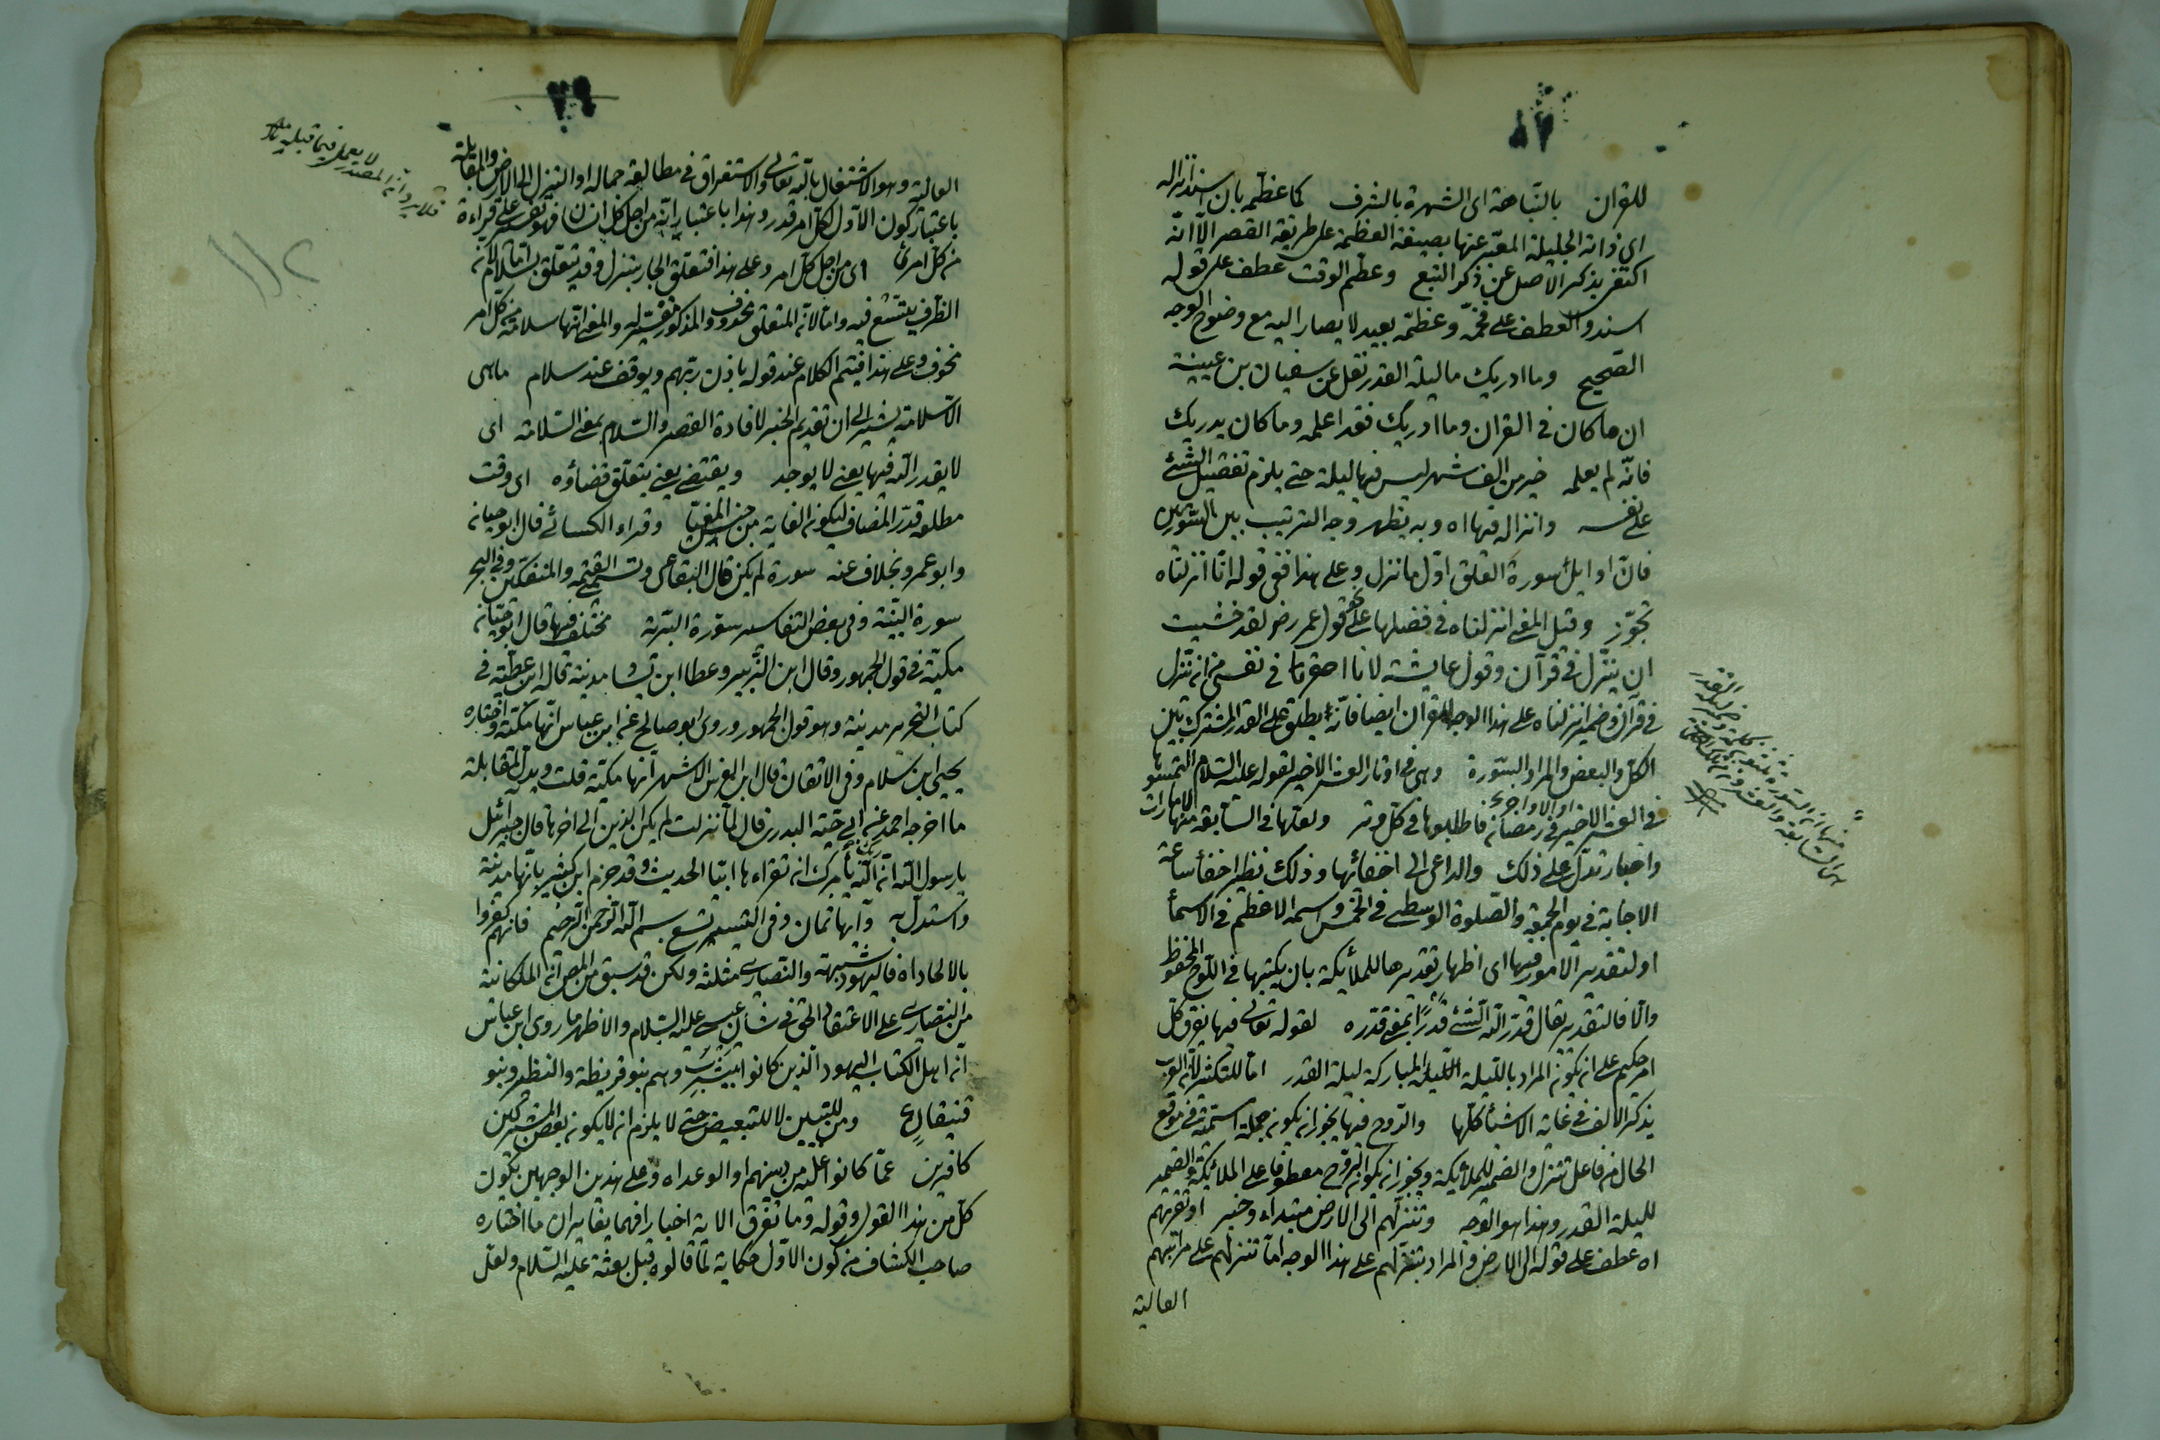 للقران بالنباهة اى الشهرة بالشرف كما عظمه بان اسند انزاله
اى ذاته الجليلة المعبر عنها بصيغة العظمة على طريقة القصر الا انه
اكتفى بذكر الاصل عن ذكر التبع وعظم الوقت عطف على قوله
اسند والعطف على فخمه وعظمه بعيد لا يصار اليه مع وضوح الوجه
الصحيح وما ادريك ما ليلة القدر نقل عن سفيان بن عيينة
ان ما كان فى القران وما ادريك فقد اعلمه وما كان يدريك
فانه لم يعلمه خير من الف شهر ليس فيها ليلة حتى يلزم تفضيل الشئ
على نفسه وانزاله فيها اه وبه يظهر وجه الترتيب بين السورتين
فان اوايل سورة العلق اول ما نزل وعلى هذا ففى قوله انا انزلناه
تجوز وقيل المعنى انزلناه فى فضلها على نحو قول عمر رض لقد خشيت
ان ينزل فى قرآن وقول عايشة لانا احقر فى نفسى من ان ينزل
فى قرآن وضمير انزلناه على هذا الوجه للقرآن ايضا فانه يطلق على القدر المشترك بين
الكل والبعض والمراد السورة وهى فى اوتار العشر الاخير لقوله عليه السلام التمسوها
فى العشر الاخير فى رمضان فاطلبوها فى كل وتر ولعلها فى السابعة منها لامارات
واخبار تدل على ذلك والداعى الى اخفائها وذلك نظير اخفأ ساعة
الاجابة فى يوم الجمعة والصلوة الوسطى فى الخمس واسمه الاعظم فى الاسمأ
او لتقدير الامور فيها اى اظهار تقديرها للملائكة بان يكتبها فى اللوح المحفوظ
والا فالتقدير يقال قدر الله الشئ قدرا بمعنى قدره لقوله تعالى فيها يفرق كل
امر حكيم على ان يكون المراد بالليلة الليلة المباركة ليلة القدر اما للتكثير لان العرب
يذكر الالف فى غاية الاشيأ كلها والروح فيها يجوز ان يكون جملة اسمية فى موقع
الحال من فاعل تنزل والضمير للملائكة ويجوز ان يكون الروح معطوفا على الملائكة والضمير
لليلة القدر وهذا هو الوجه وتنزلهم الى الارض مبتداء وخبر او تقربهم
اه عطف على قوله الى الارض والمراد بتنزلهم على هذا الوجه اما تنزلهم على مراتبهم
العالية
العالية وهو الاشتغال بالله تعالى والاستغراق فى مطالعة جماله او التنزل الى الارض والمقابلة
باعتبار كون الاول لكل امر قدر وهذا باعتبار انه من اجل كل انسان فهو تفسير على قراءة
من كل امرئ اى من اجل كل امر وعلى هذا فتعلق الجار بتنزل وقد يتعلق بسلام اما لانه
الظرف يتسع فيه واما لان المتعلق محذوف والمذكور مفسر له والمعنى انها سلامة من كل امر
مخوف وعلى هذا فيتم الكلام عند قوله باذن ربهم ويوقف عند سلام ما هى
الا سلامة يشير الى ان تقديم الخبر لافادة القصر والسلام بمعنى السلامة اى
لا يقدر الله فيها يعنى لا يوجد ويقتضى يعنى يتعلق قضاؤه اى وقت
مطلعه قدر المضاف ليكون الغاية من جنس المغيا وقراء الكسائى قال ابو حيان
وابو عمرو بخلاف عنه سورة لم يكن قال البقاعى وتسمى القيمة والمنفكين وفى البحر
سورة البينة وفى بعض التفاسير سورة البرية مختلف فيها قال ابو حيان
مكية فى قول الجمهور وقال ابن الزبير وعطا ابن يسار مدنية قاله ابن عطية فى
كتاب التحرير مدنية وهو قول الجمهور وروى ابو صالح عن ابن عباس انها مكية واختاره
يحيى ابن سلام وفى الاتقان قال ابن الغرس الاشهر انها مكية قلت ويدل لمقابله
ما اخرجه احمد عن ابى حبة البدرى قال لما نزلت لم يكن الذين الى اخرها قال جبرائيل
يا رسول الله ان الله يأمرك ان تقراءها ابيا الحديث وقد جزم ابن كثير بانها مدنية
واستدل به وآيها ثمان وفى التيسير تسع بسم الله الرحمن الرحيم فانهم كفروا
بالالحاد اه فاليهود مشبهة والنصارى مثلثة ولكن قد سبق من المص ان الملكانية
من النصارى على الاعتقاد الحق فى شأن عيسى عليه السلام والاظهر ما روى ابن عباس
ان اهل الكتاب اليهود الذين كانوا بيثرب وهم بنو قريظة والنظير وبنو
قنيقاع ومن للتبيين لا للتبعيض حتى لا يلزم ان لا يكون بعض المشركين
كافرين عما كانوا عليه من دينهم او الوعد اه وعلى هذين الوجهين يكون
كل من هذا القول وقوله وما تفرق الاية اخبارا فهما يغايران ما اختاره
صاحب الكشاف من كون الاول حكاية لما قالوه قبل بعثة عليه السلام ولعل
فلا يرد ان المصدر لا يعمل فيما قبله
١١٢